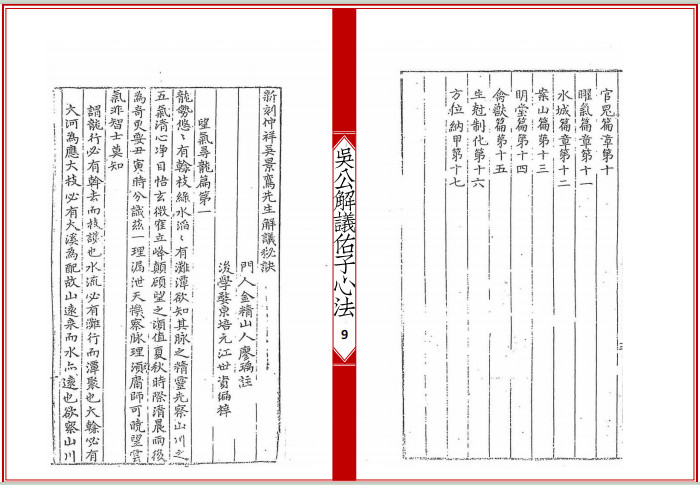 官鬼篇章第十
曜氣篇章第十一
水城篇章第十二
案山篇第十三
明堂篇第十四
禽獸篇第十五
生尅制化第十六
方位納甲第十七
吳公解議佑子心法
9
新刻仲祥吳景鸞先生解議秘訣
門人金精山人廖瑀註
後學婺東培元江世資編梓
望氣尋龍篇第一
龍勢悠悠有幹枝綠水滔滔有灘潭欲知其脉之精靈先察山川之
五氣清心淨目悟玄微窪立峰顛頭望之須值夏秋時際清晨雨後
為奇更無丑寅時分識燕一理漏泄天機察脉理須庸師可曉望雲
氣非智士莫知
謂龍行必有幹去而枝護也水流必有灘行而潭聚也大幹必有
大河為應大枝必有大溪為配故山遠來而水亦遠也欲察山川